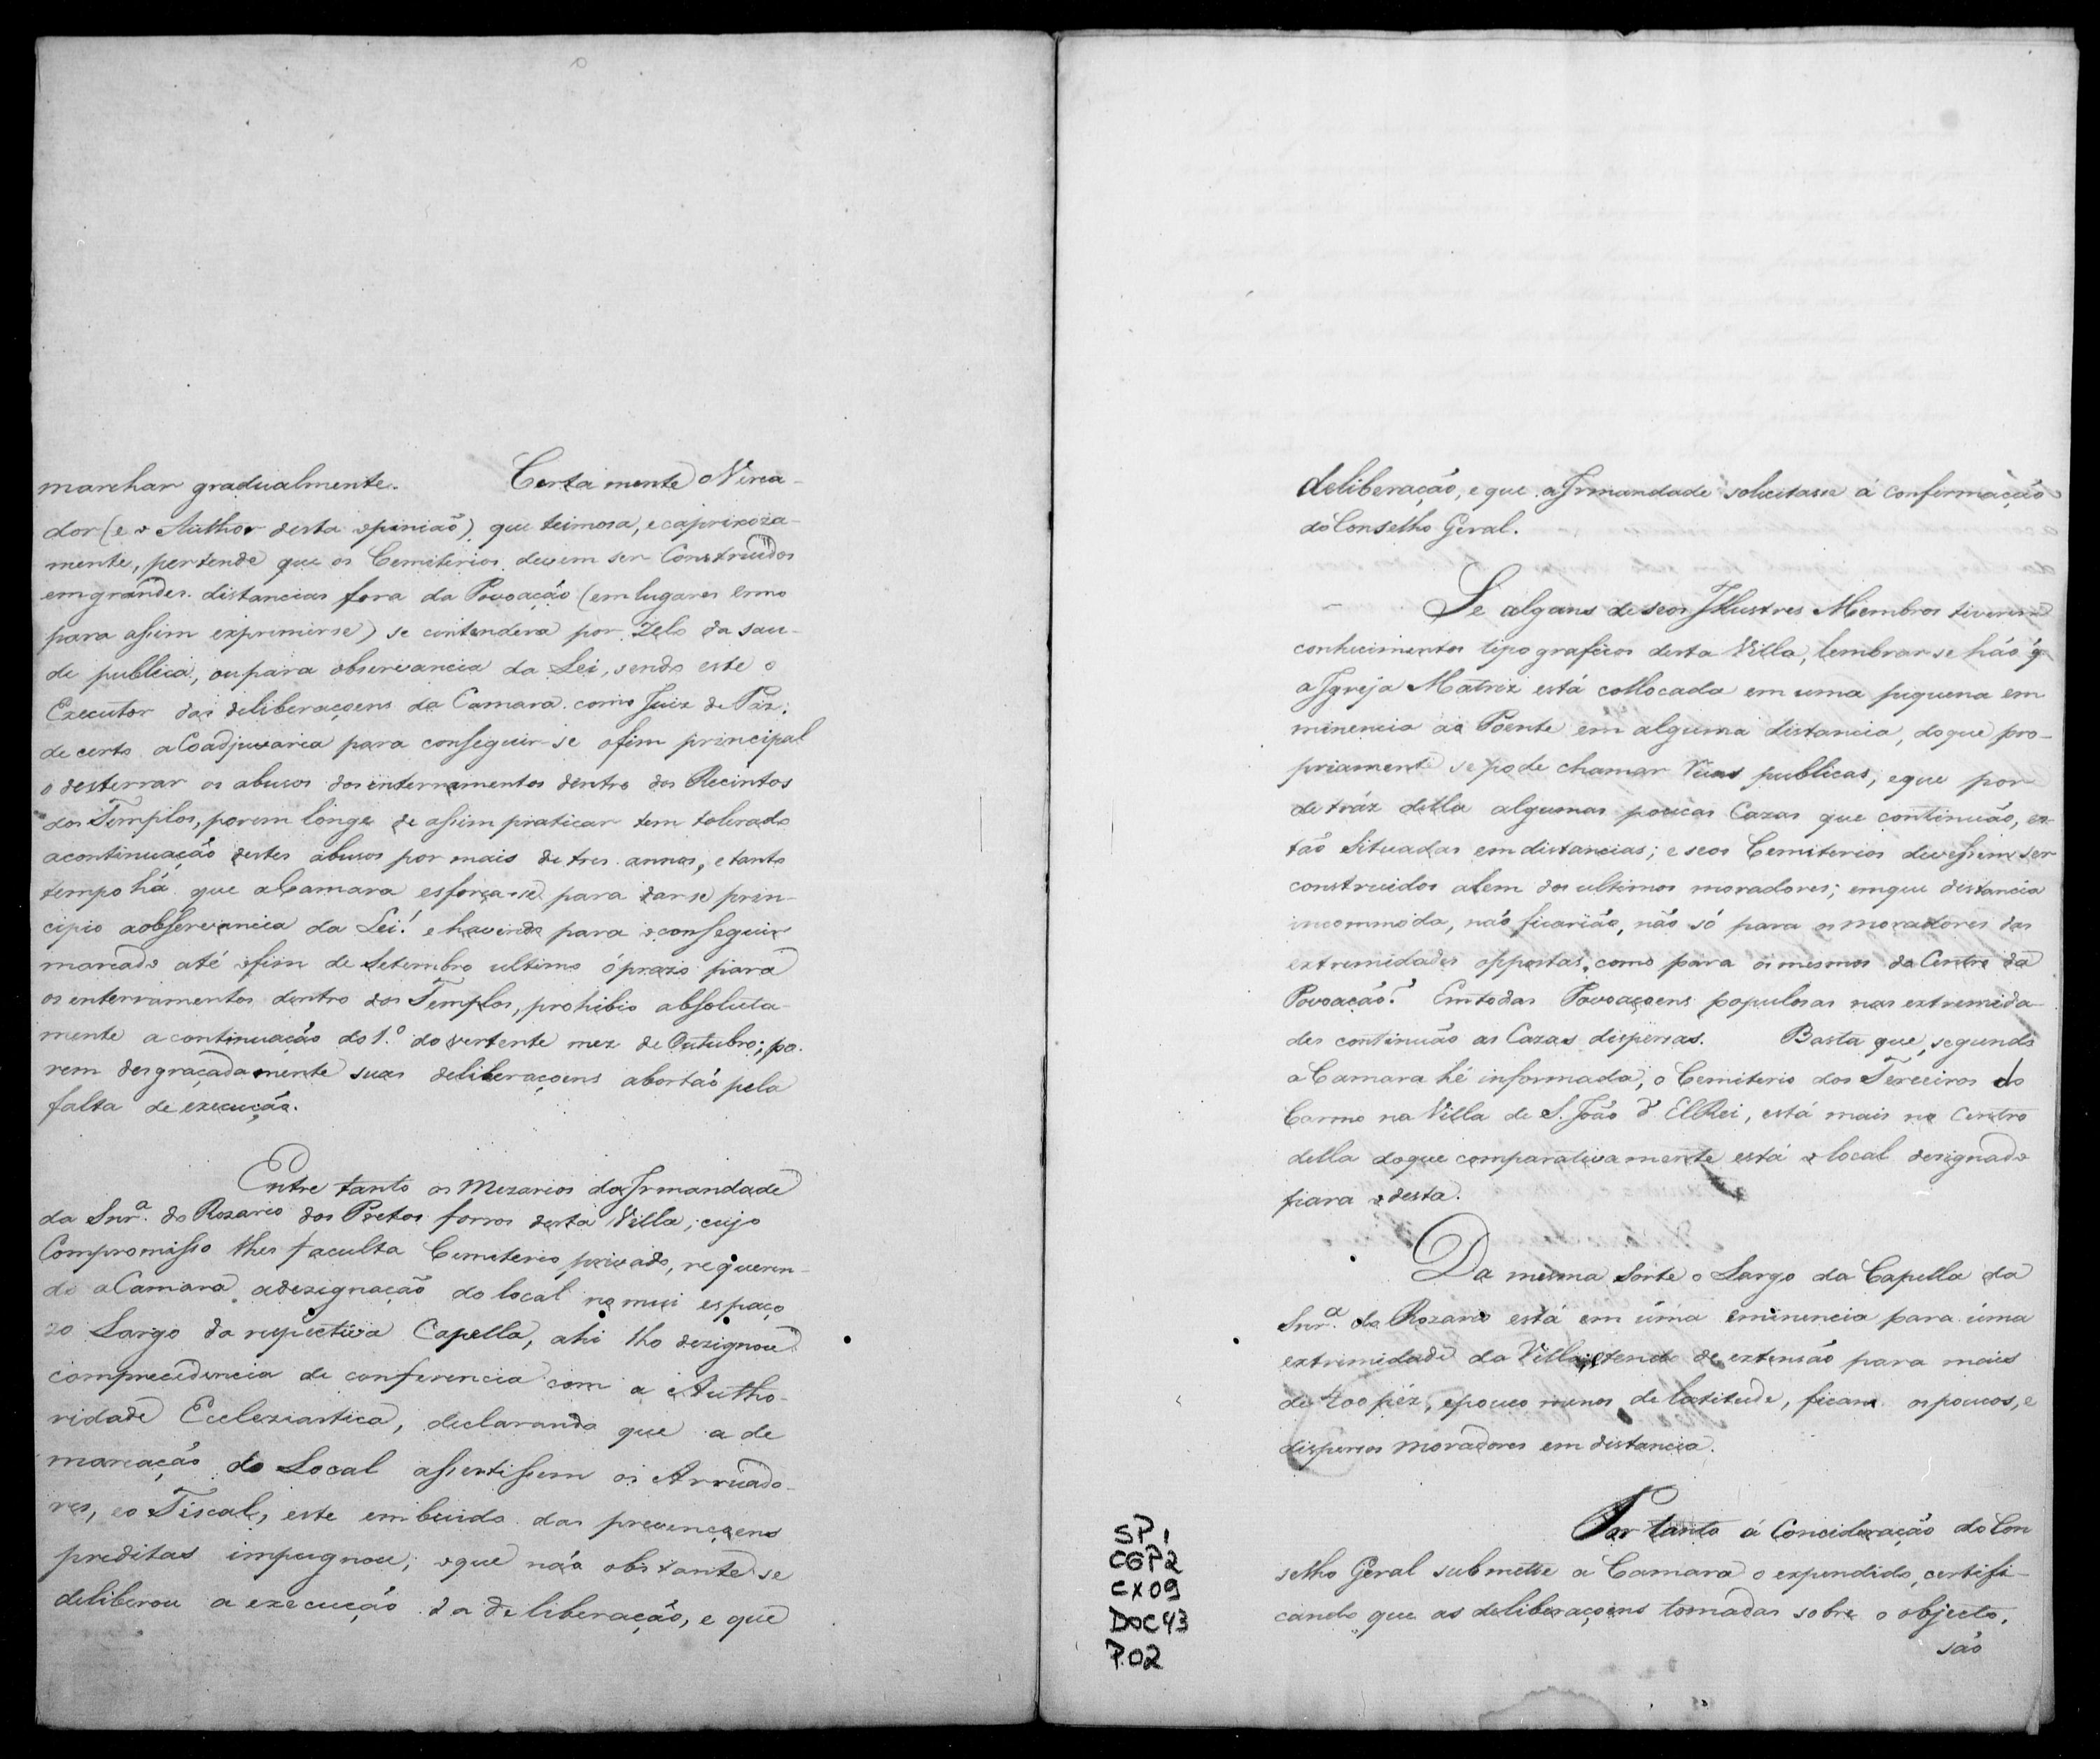 marchar gradualmente. Certa mente o Verea-
dor (e o Author desta opinião) que teimosa, e caprixoza-
mente, pertende que os Cemiterios devem ser Construidos
em grandes distancias fora da Povoação (em lugares ermo
para assim exprimirse) se contendera por Zelo da sau-
de publica, ou para observancia da Lei, sendo este o
Executor das deliberaçoens da Camara como Juiz de Paz;
de certo a Coadjuvaria para conseguir-se o fim principal
o desterrar os abusos dos enterramentos dentro dos Recintos
dos Templos, porem longe de assim praticar tem tolerado
a continuação destes abusos por mais de tres annos, e tanto
tempo há que a Camara esforça-se para dar se prin-
cipio a observancia da Lei! e havendo para o conseguir
marcado até o fim de Setembro ultimo o prazo para
os enterramentos dentro dos Templos, prohibio absoluta-
mente a continuação do 1.º do vertente mez de Outubro; po-
rem desgraçadamente suas deliberaçoens abortão pela
falta de execução.
Entre tanto os Mezarios da Irmandade
da Snr.ª do Rozario dos Pretos forros desta Villa, cujo
Compromisso lhes faculta Cemeterio privado, requeren-
do a Camara a dezignação do local no meu espaço
zo Largo da respectiva Capella, ahi lho dezignou
com precedencia de conferencia com a Autho-
ridade Eccleziastica, declarando que a de
marcação do Local assistissem os Arruado-
res, e o Fiscal, este embuido das prevençoens
preditas impugnou; o que não obstante se
deliberou a execução da deliberação, e que
deliberação, e que a Irmandade solicitasse á confirmação
do Conselho Geral.
Se alguns de seos Illustres Membros tiverem
conhecimentos tipograficos desta Villa, lembrar-se hão q̃
a Igreja Matriz está collocada em uma piquena em
minencia ao Poente em alguma distancia, do que pro-
priamente se pode chamar Ruas publicas, e que por
detráz della algumas poucas Cazas que continuão, es-
tão Situadas em distancias; e se os Cemiterios devessem ser
construidos alem dos ultimos moradores; em que distancia
incommoda, não ficarião, não só para os moradores das
extremidades oppostas, como para os mesmos do Centro da
Povoação? Em todas Povoaçoens populosas nas extremida-
des continuão as Cazas dispersas. Basta que, segundo
a Camara hé informada, o Cemiterio dos Terceiros do
Carmo na Villa de S. João d' ElRei, está mais no Centro
della do que comparativamente está o local designado
para o desta.
Da mesma Sorte o Largo da Capella da
Snr.ª do Rozario está em úma eminencia para úma
extremidade da Villa, e tendo de extensão para mais
de 400 péz, e pouco menos de latitude, ficam os poucos, e
dispersos moradores em distancia.
Por tanto á Concideração do Con
selho Geral submette a Camara o expendido, certifi-
cando que as deliberaçoens tomadas sobre o objecto,
são
SP 1
CGP2
CX09
DOC43
P.02